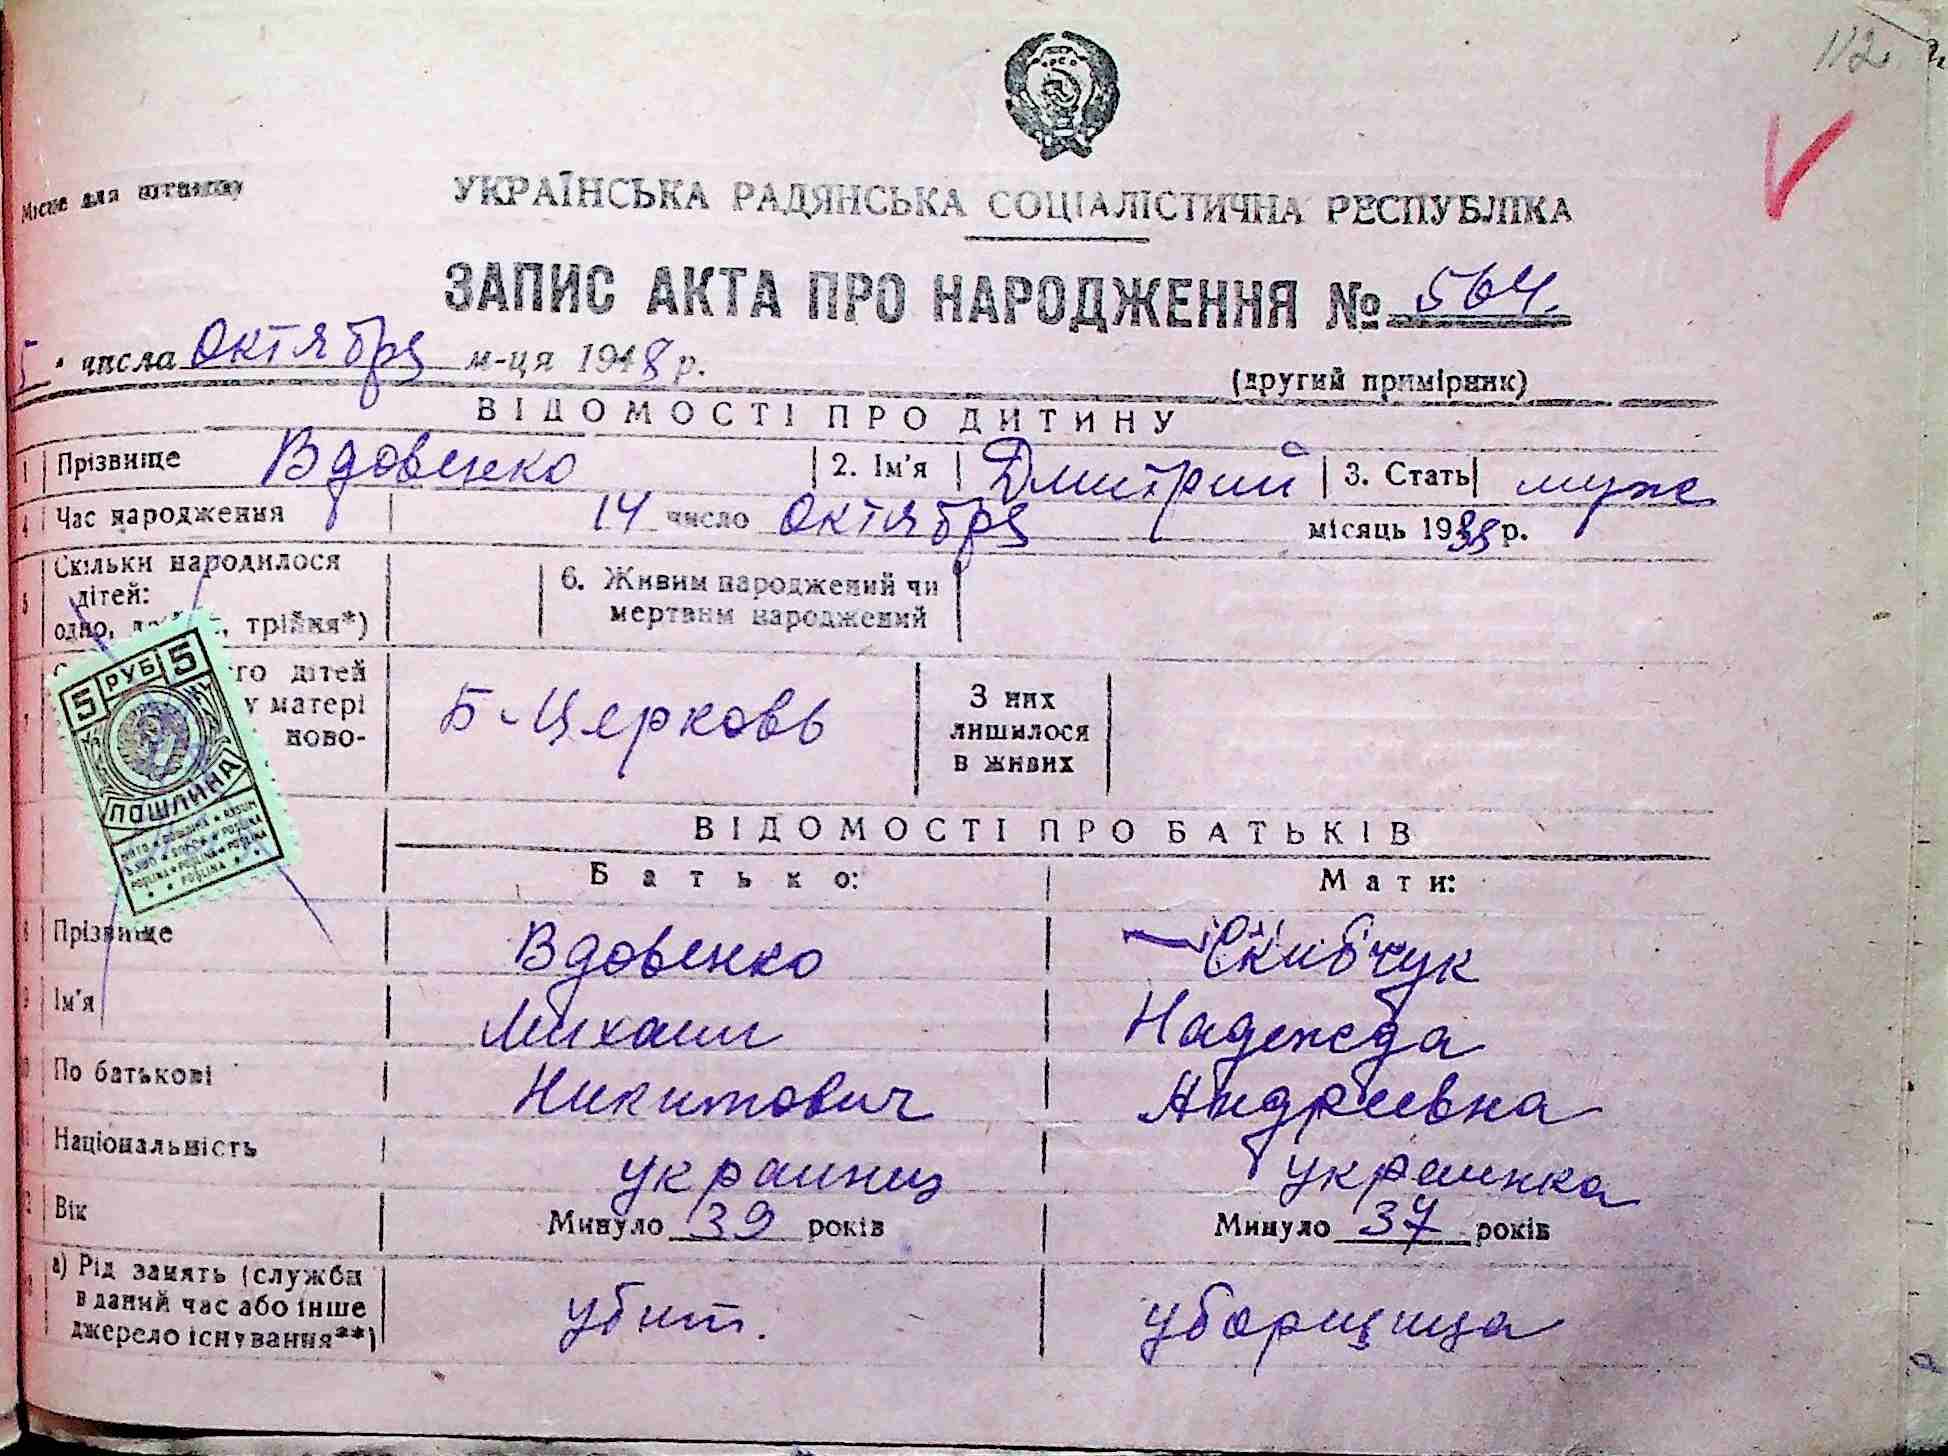 112
Місце для штампу
УКРАЇНСЬКА РАДЯНСЬКА СОЦІАЛІСТИЧНА РЕСПУБЛІКА
ЗАПИС АКТА ПРО НАРОДЖЕННЯ № 564.
5 числа Октября м-ця 1948 р.
(другий примірник)
ВІДОМОСТІ ПРО ДИТИНУ
1 Прізвище Вдовенко 2. Ім'я Дмитрий 3. Стать муж
4 Час народження 14 число Октября місяць 1938 р.
5 Скільки народилося дітей: одно, трійня*)
6. Живим народжений чи мертвим народжений
7 го дітей у матері ново-
Б-Церковь
З них лишилося в живих
5 РУБ 5
ПОШЛИНА
ВІДОМОСТІ ПРО БАТЬКІВ
Батько: Мати:
8 Прізвище Вдовенко Скибчук
9 Ім'я Михаил Надежда
10 По батькові Никитович Андреевна
11 Національність украинец украинка
12 Вік Минуло 39 років Минуло 37 років
а) Рід занять (служби в даний час або інше джерело існування**) убит. уборщица